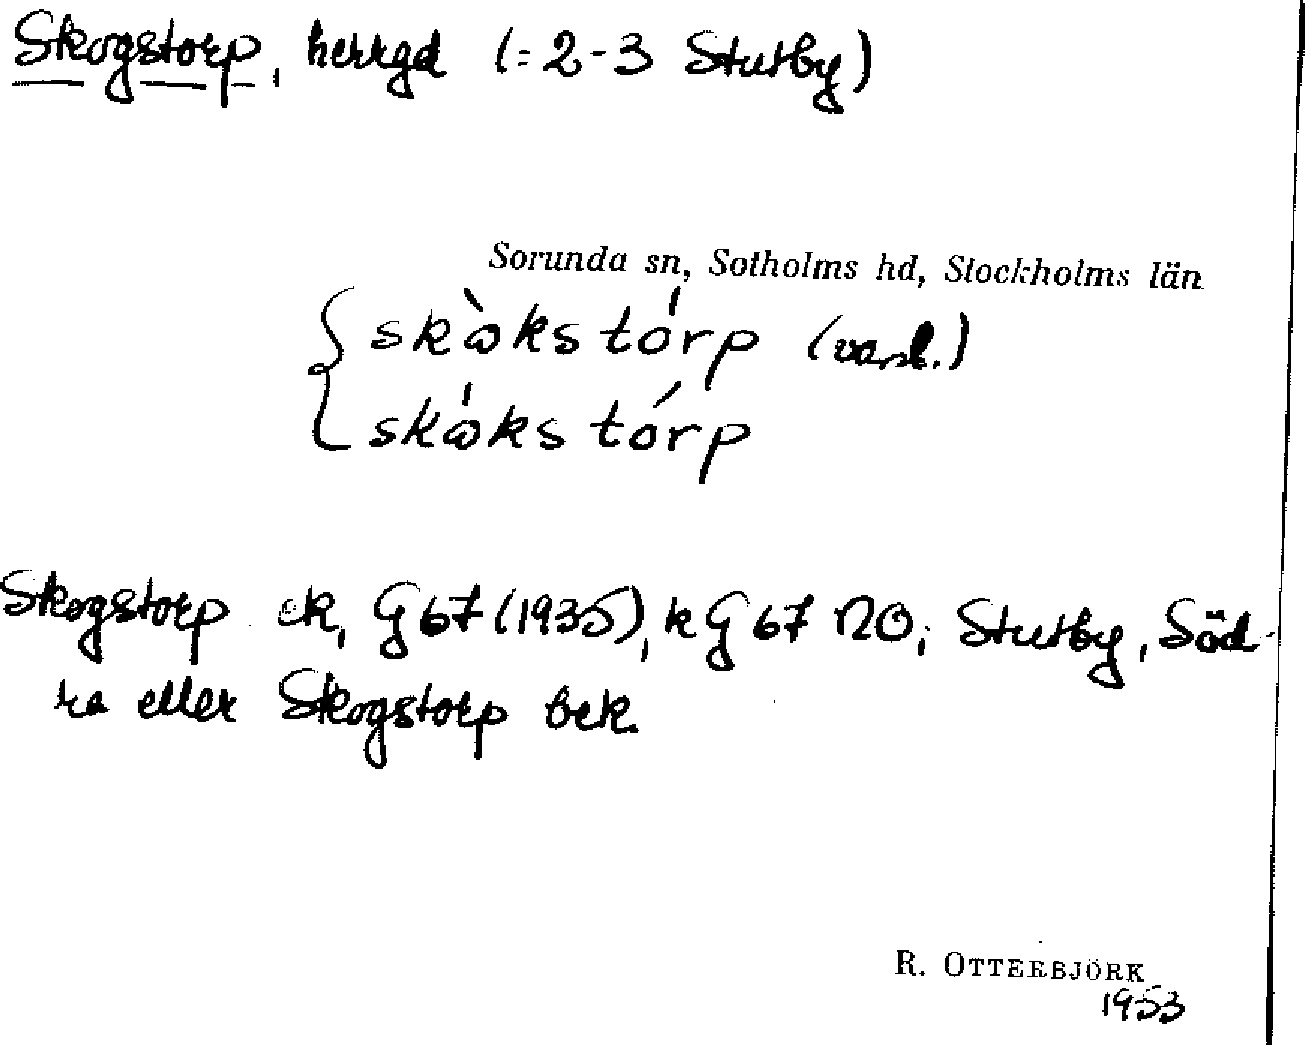 Skogstorp, herrgd (= 2-3 Stutby)
Sorunda sn, Sotholms hd, Stockholms län
skὼkstórp (vanl.)
skώkstórp
Skogstorp ek, G 67 (1935), k G 67 NO; Stutby, Söd-
ra eller Skogstorp bek.
R. OTTERBJÖRK
1953